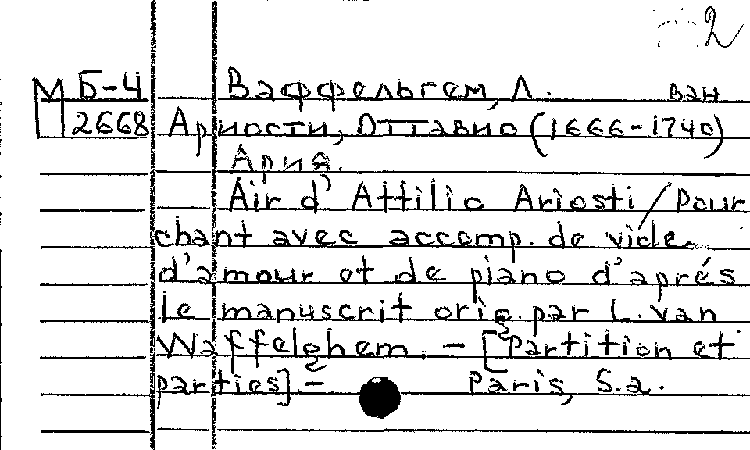 2
М Б-4 Ваффельгем, Л. ван
2668 Ариости, Оттавио (1666-1740)
Ария.
Air d'Attilio Ariosti / Pour
chant avec accomp. de viole
d'amour et de piano d'aprés
le manuscrit orig. par L. van
Waffelghem. - [Partition et
parties] - Paris, S.a.